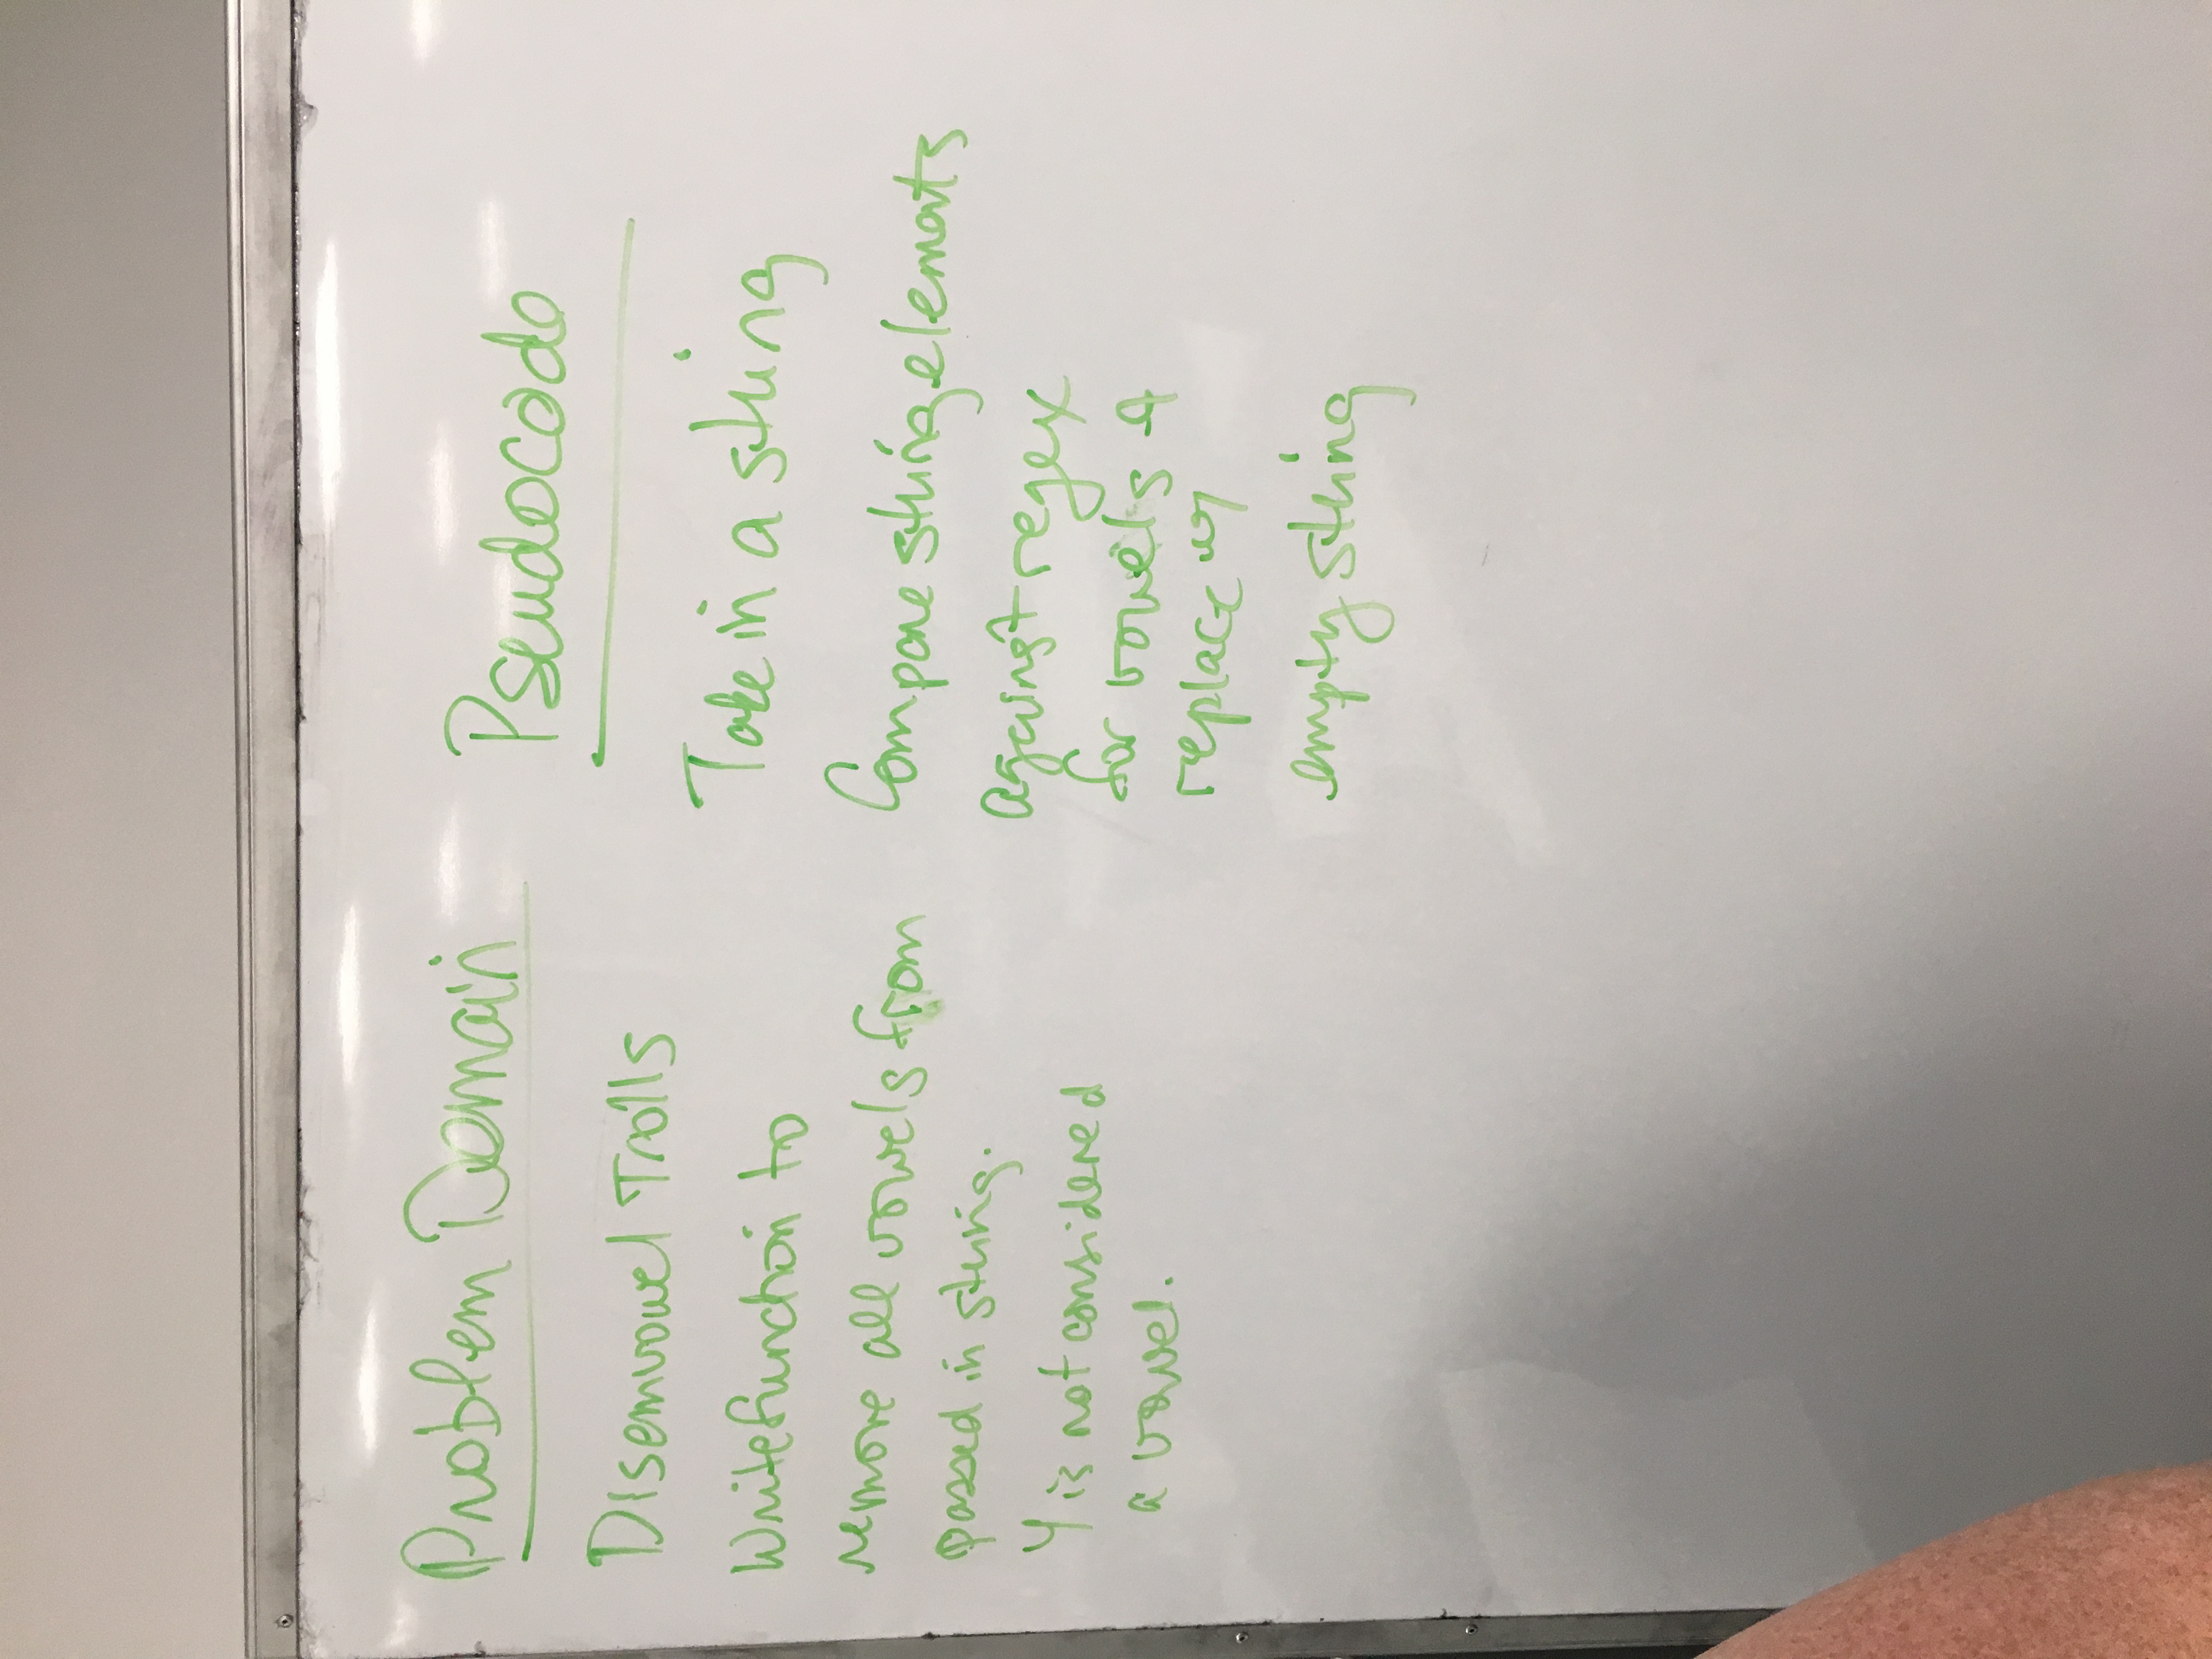 Problem Domain
Disemvowel Trolls
Write function to
remove all vowels from
passed in string.
Y is not considered
a vowel.
Pseudocode
Take in a string
Compare string elements
against regex
for vowels &
replace w/
empty string